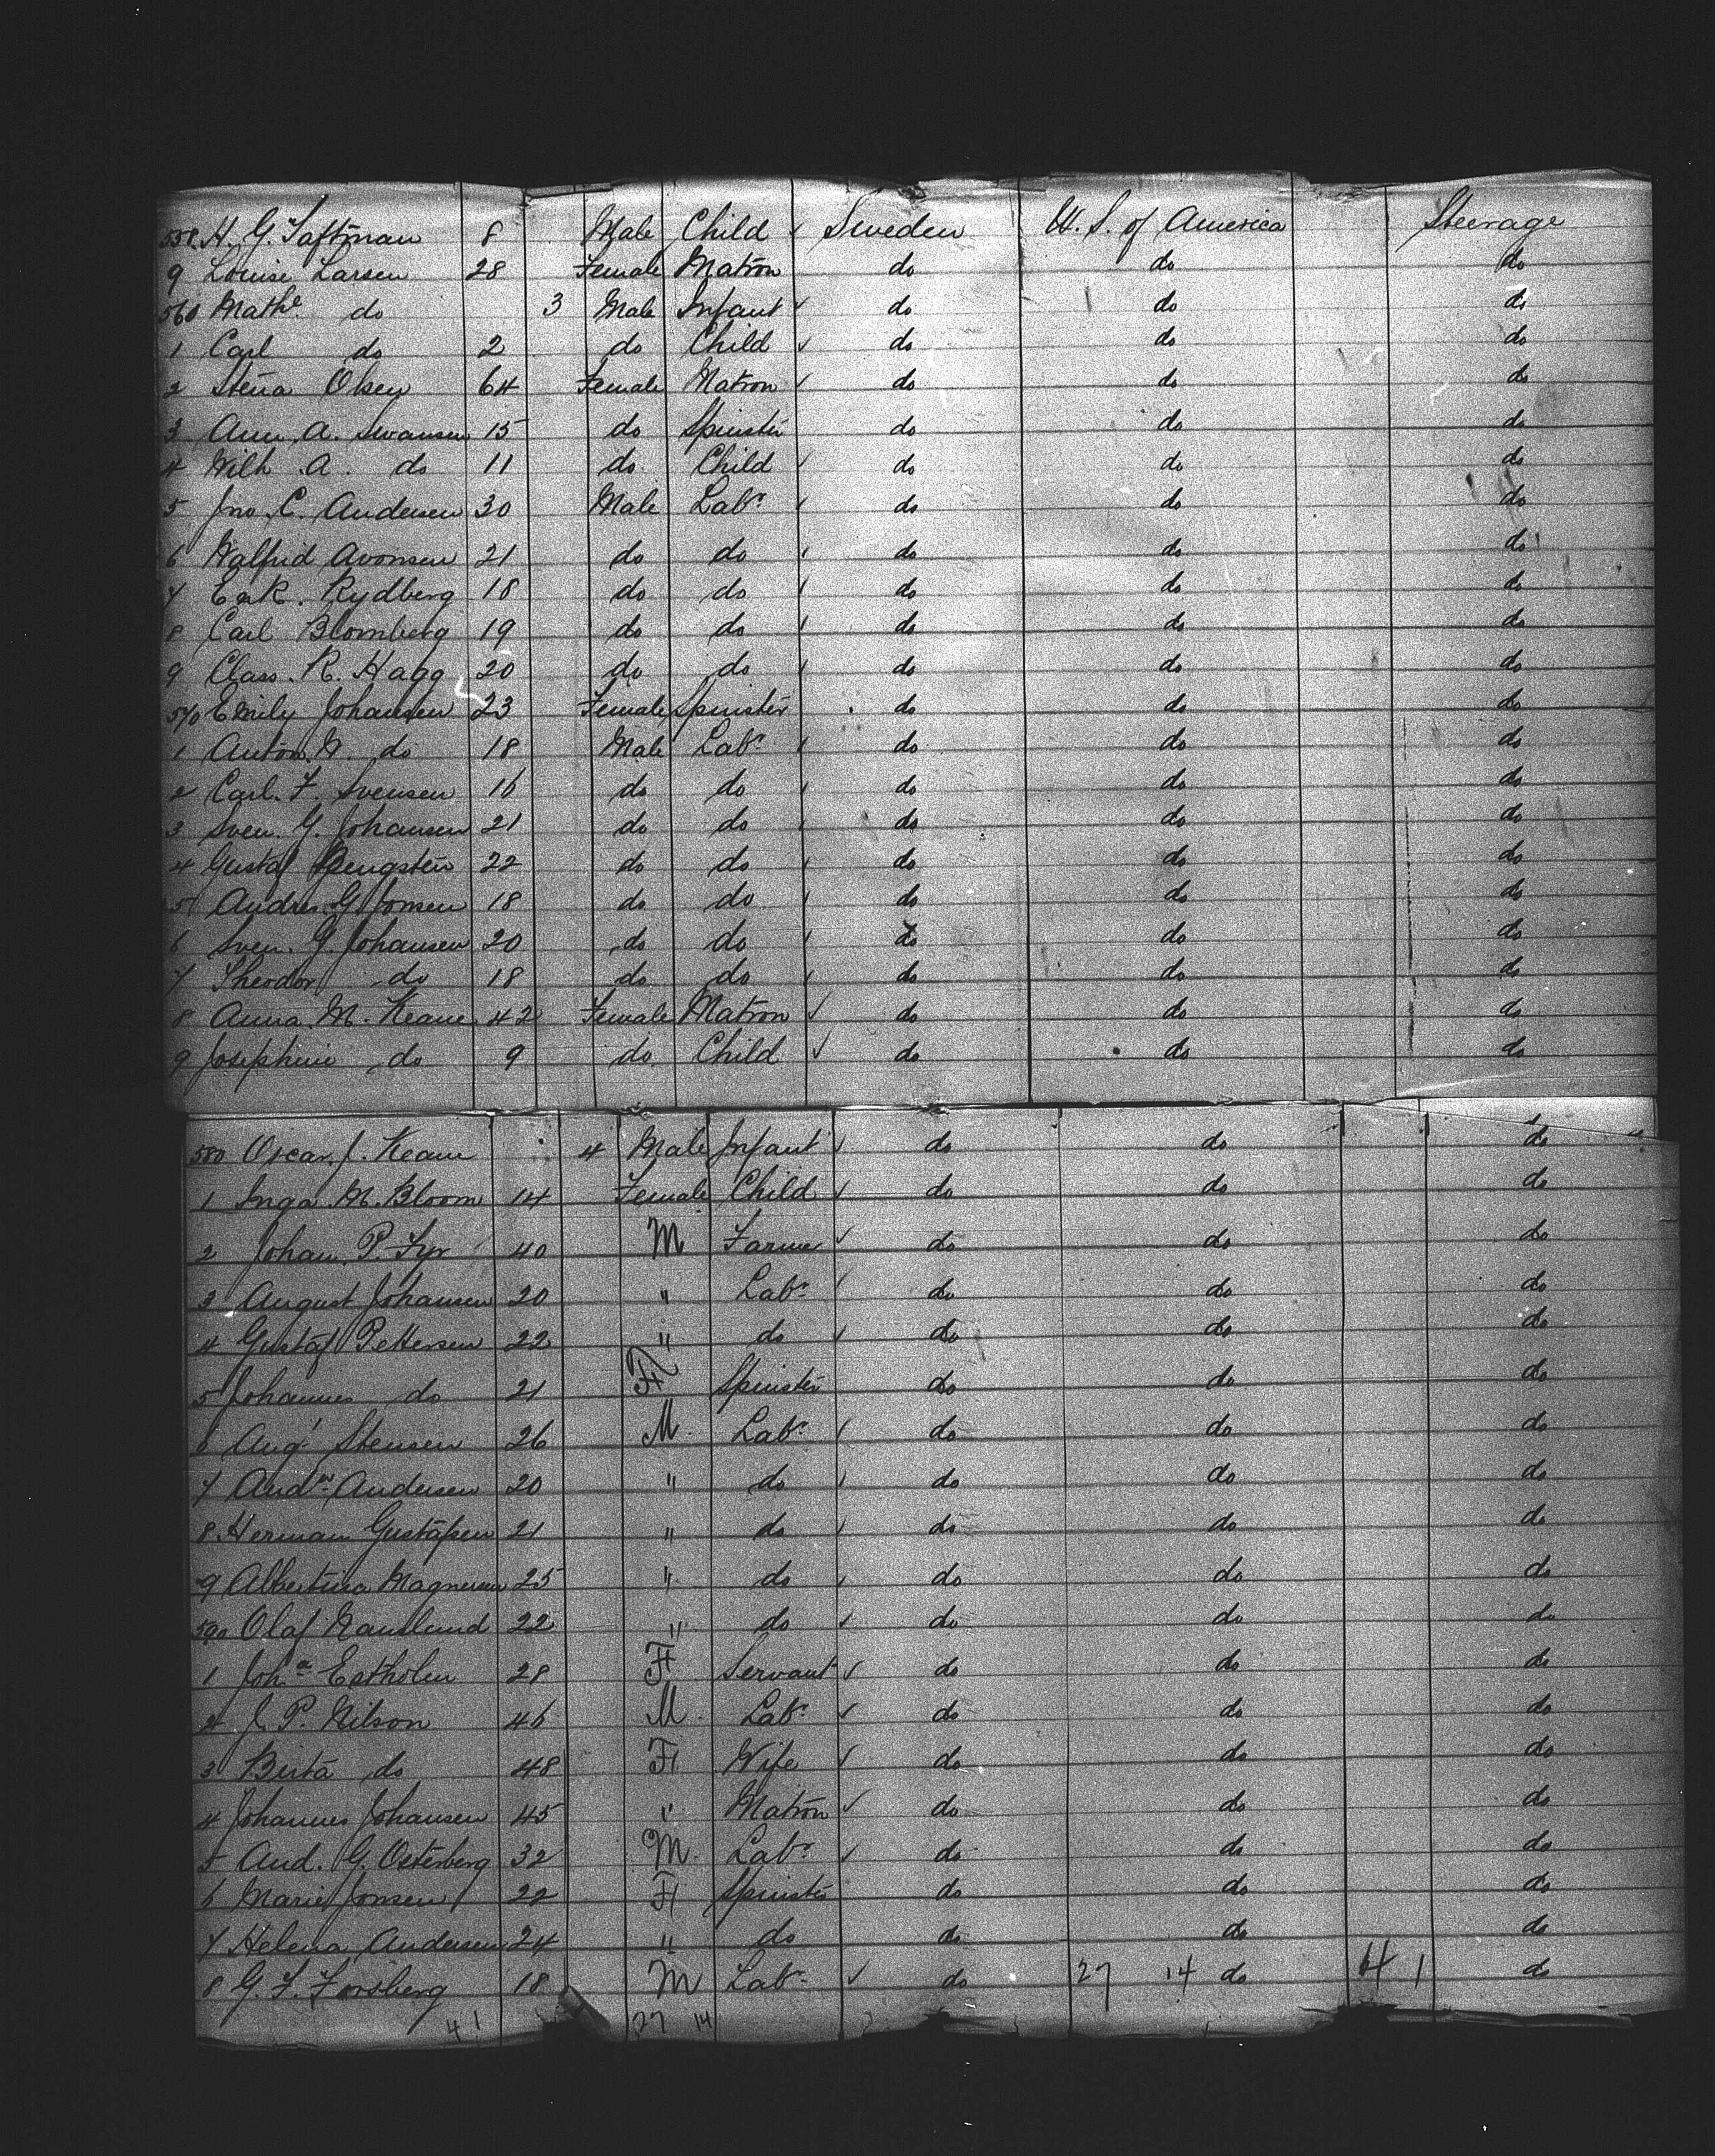 558 H. G. Taftman 8 Male Child ✓ Sweden U. S. of America Steerage
9 Louise Larsen 28 Female Matron do do do
560 Math^e do 3 Male Infant ✓ do do do
1 Carl do 2 do Child ✓ do do do
2 Stena Olsen 64 Female Matron ✓ do do do
3 Ann A. Swansen 15 do Spinster do do do
4 Wilh A. do 11 do Child ✓ do do do
5 Jno. C. Andersen 30 Male Lab^r ✓ do do do
6 Walfrid Avonsen 21 do do ✓ do do do
7 E & R. Rydberg 18 do do ✓ do do do
8 Carl Blomberg 19 do do ✓ do do do
9 Class. R. Hagg 20 do do ✓ do do do
570 Emily Johansen 23 Female Spinster do do do
1 Anton. W. do 18 Male Lab^r ✓ do do do
2 Carl. F. Svensen 16 do do ✓ do do do
3 Sven. G. Johansen 21 do do ✓ do do do
4 Gustaf Bengsten 22 do do ✓ do do do
5 Andres G. Jonsen 18 do do ✓ do do do
6 Sven. G. Johansen 20 do do ✓ do do do
7 Theodor do 18 do do ✓ do do do
8 Anna. M. Keane 42 Female Matron ✓ do do do
9 Josephine do 9 do Child ✓ do do do
580 Oscar. J. Keane 4 Male Infant ✓ do do do
1 Inga M. Bloom 14 Female Child ✓ do do do
2 Johan. P. Fyr 40 M Farmer ✓ do do do
3 August Johansen 20 " Lab^r ✓ do do do
4 Gustaf Pettersen 22 " do ✓ do do do
5 Johannes do 21 F Spinster do do do
6 Aug^t Stensen 26 M. Lab^r ✓ do do do
7 And^w Andersen 20 " do ✓ do do do
8. Herman Gustafsen 21 " do ✓ do do do
9 Albertina Magnersen 25 " do ✓ do do do
590 Olaf 22 " do ✓ do do do
1 Joh^a Estholm 28 F Servant ✓ do do do
2 J. P. Nilson 46 M. Lab^r ✓ do do do
3 Birta do 48 F Wife ✓ do do do
4 Johannes Johansen 45 " Matron ✓ do do do
5 And. G. Osterberg 32 M. Lab^r ✓ do do do
6 Marie Jonsen 22 F Spinster do do do
7 Helena Andersen 24 " do do do do
8 G. F. Forsberg 18 M Lab^r ✓ do 27 14 do 41 do
41 27 14